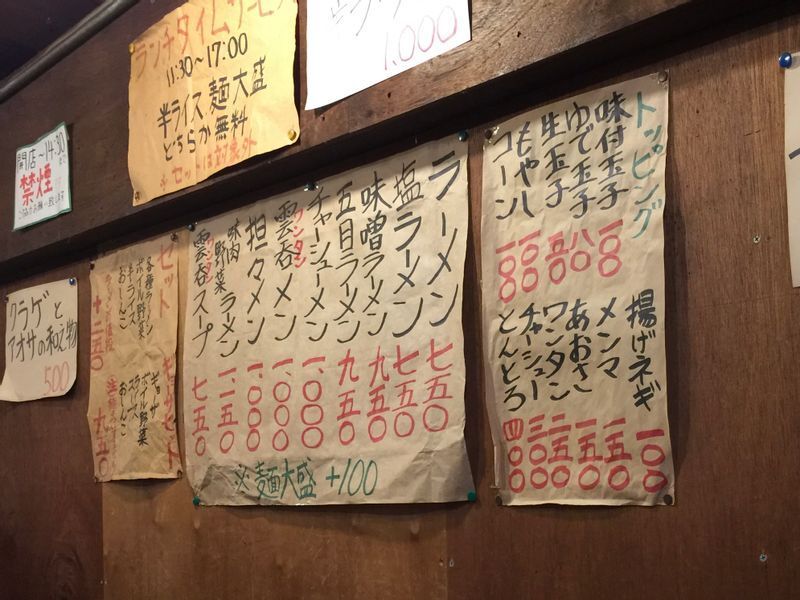 ランチタイムサービス
11:30〜17:00
半ライス 麺大盛
どちらか無料
※セットは対象外
1.000
開店〜14:30まで
禁煙
クラゲと
アオサの和え物
500
セット
各種ラーメン
ボイル野菜
半ライス
おしんこ
+二五〇
ギョーザセット
ギョーザ
ボイル野菜
ライス
おしんこ
ラーメン 七五〇
塩ラーメン 七五〇
味噌ラーメン 九五〇
五目ラーメン 九五〇
チャーシューメン 一、〇〇〇
雲呑メン 一、〇〇〇
ワンタン
担々メン 一、〇〇〇
味肉野菜ラーメン 一、一五〇
雲呑スープ 七五〇
※麺大盛 +100
トッピング
味付玉子 一〇〇
ゆで玉子 八〇
生玉子 五〇
もやし 一〇〇
コーン 一〇〇
揚げネギ 一〇〇
メンマ 一五〇
あおさ 一五〇
ワンタン 二五〇
チャーシュー 三〇〇
とんとろ 四〇〇